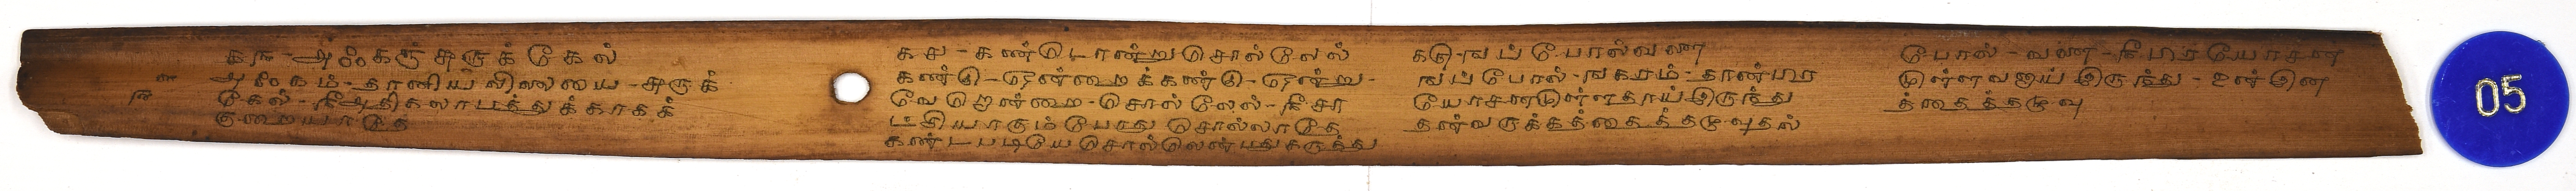 ௧௩ - அஃகஞ் சுருக்கேல்
அஃகம் - தானிய விலையை - சுருக்
கேல் - நீ அதிகலாபத்துக்காகக்
குறையாதே
௧௪ - கண்டொன்று சொல்லேல்
கண்டு - ஒன்றைக்கண்டு - ஒன்று -
வேறொன்றை - சொல்லேல் - நீ சா
ட்சியாகும்போது சொல்லாதே
கண்டபடியே சொல்லென்பது கருத்து
௧௫ - ஙப்போல்வளை
ஙப்போல் - ஙகரம் - தான்பிர
யோசனமுள்ளதாய்இருந்து
தன்வருக்கத்தைத்தழுவுதல்
போல் - வளை - நீ பிரயோசன
முள்ளவனாய் இருந்து - உன் இன
த்தைத்தழுவு
05